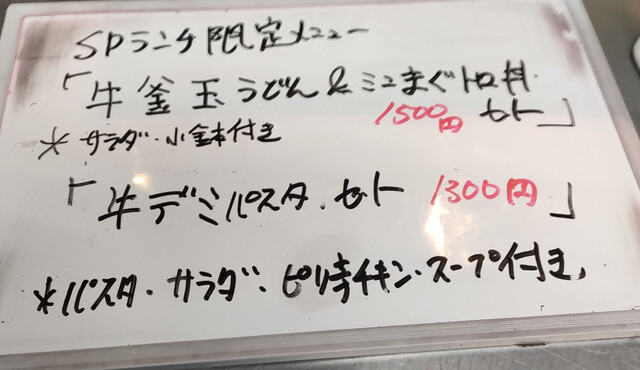 SPランチ限定メニュー
「牛釜玉うどん&ミニまぐトロ丼
1500円 セット」
※サラダ・小鉢付き
「牛デミパスタ・セット 1300円」
※パスタ・サラダ・ピリ辛チキン・スープ付き